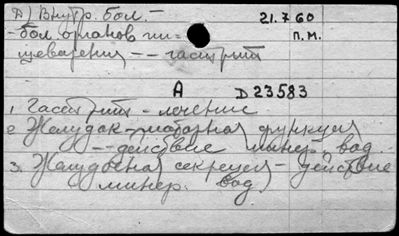 Д) Внутр. бол. –
21.7 60
– бол органов пи=
п.м.
щеварения – – гастрит
А D 23583
1. Гастрит – лечение
2. Желудок – моторная функция
– – действие минер. вод.
3. Желудочная секреция – действие
минер. вод.